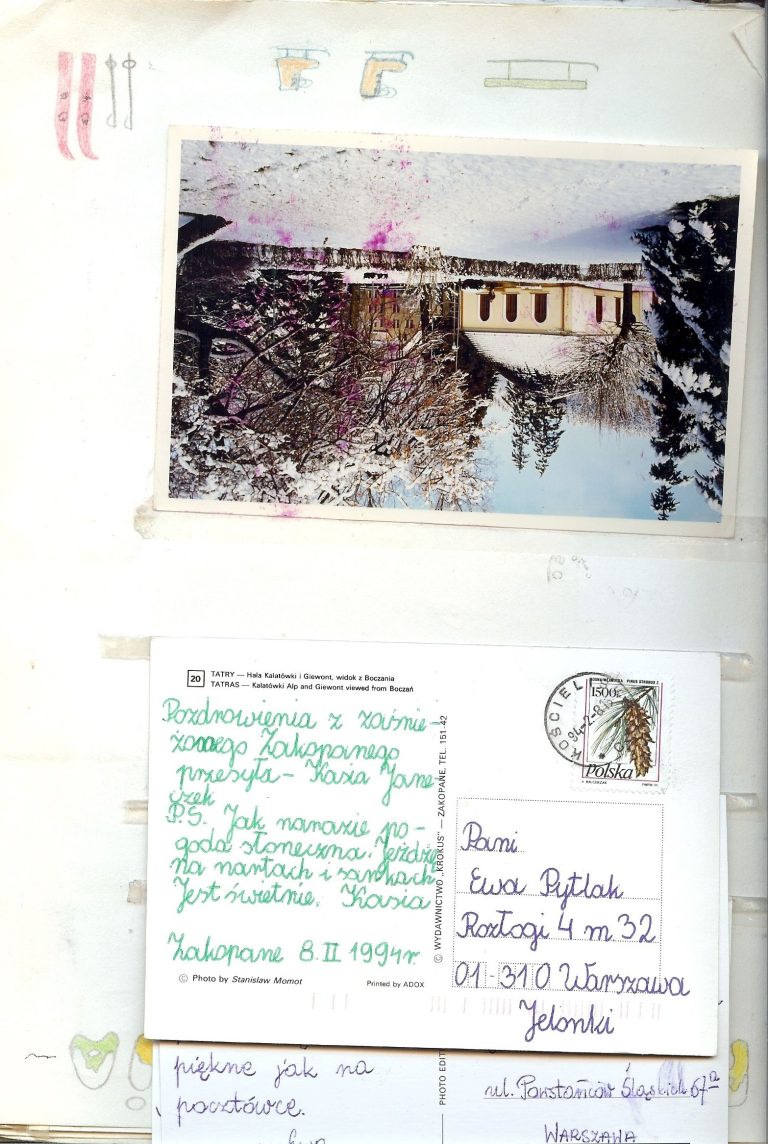 20
TATRY — Hala Kalatówki i Giewont, widok z Boczania
TATRAS — Kalatówki Alp and Giewont viewed from Boczań
Pozdrowienia z zaśnie-
żonego Zakopanego
przesyła – Kasia Jane-
czek
P.S. Jak narazie po-
goda słoneczna. Jeżdżę
na nartach i sankach
Jest świetnie. Kasia
Zakopane 8.II 1994r.
© Photo by Stanisław Momot
Printed by ADOX
© WYDAWNICTWO „KROKUS” — ZAKOPANE, TEL. 151-42
PINUS STROBUS
1500zł
polska
KOŚCIEL
94-2-8
Pani
Ewa Pytlak
Rozłogi 4 m 32
01-310 Warszawa
Jelonki
piękne jak na
pocztówce.
PHOTO EDIT
ul. Powstańców Śląskich 67a
WARSZAWA